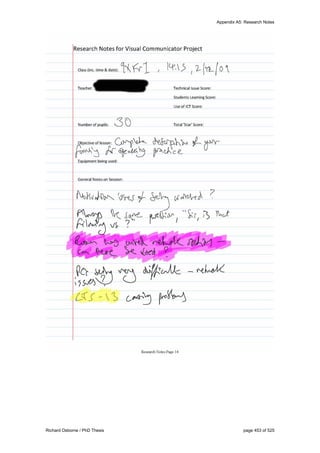 Appendix A5: Research Notes
Research Notes for Visual Communicator Project
Class (inc. time & date): 9XFr1, 14.15, 2/12/09
Teacher:
Technical Issue Score:
Students Learning Score:
Use of ICT Score:
Number of pupils: 30
Total 'Star' Score:
Objective of lesson: Complete description of your
family for speaking practice
Equipment being used:
General Notes on Session:
issues of being watched?
Always the same question, "Sir, is that
filming us?"
Room has wired network sockets –
can these be used?
PCs being very difficult – network
issues?
LTS-13 causing problems
Research Notes Page 14
Richard Osborne / PhD Thesis
page 453 of 525